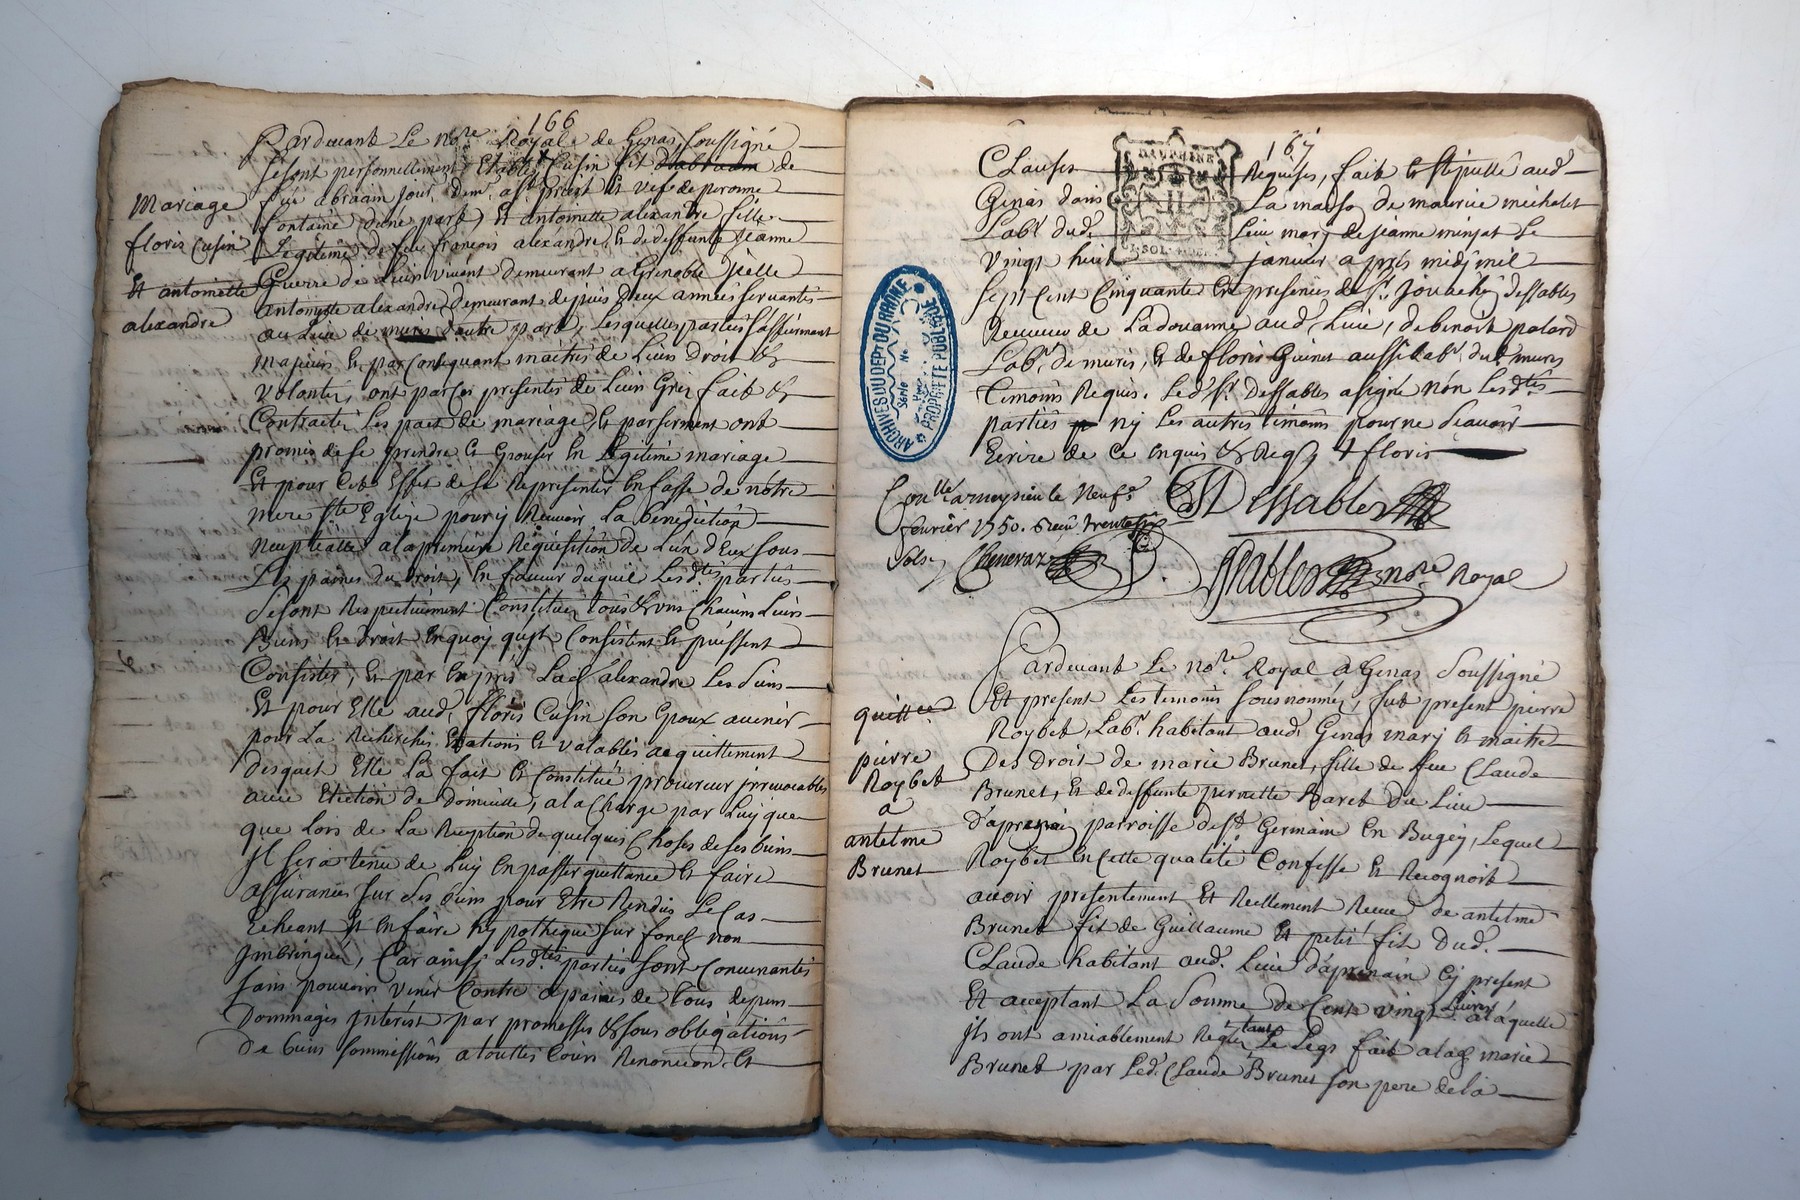 166
Pardevant Le no.re Royal de Genas soussigné
se sont personnellement Etablis Cusin fils de
feu abraam jour.
Mariage
fontaine d'une part, Et antoinette alexandre fille
floris Cusin
Légitime de feu françois alexandre, & de deffunte Jeanne
Et antoinette
Guerre de Leur vivant demeurant a Grenoble Jcelle
alexandre
antoinette alexandre demeurant depuis deux années servante
au Lieu de mures d'autre part, Lesquelles parties
majeurs & par Consequant maitres de Leurs Droit &
volontés, ont par Ces presentes de Leur Gré fait &
Contracté Les pact de mariage, & par serment ont
promis de se prendre & Epouser En Legitime mariage
Et pour Cet Effet de se Representer En fasse de notre
mere S.te Eglise pour y Recevoir La benediction
Nuptialle a la premiere Requisition de L'un d'Eux sous
Les paines du Droit, En faveur duquel Lesd.tes parties
se sont Respectivement Constitués tous & uns Chacuns Leurs
Biens & droit En quoy qu'jls Consistent & puissent
Consister, & par Exprés Lad. alexandre Les Siens
Et pour Elle aud. floris Cusin son Epoux avenir
pour La Recherche Exations & valables acquittement
desquels Elle La fait & Constitué procureur jrrevocable
avec Election de Domicille, a la Charge par Luy que
que Lors de La Reception de quelques Choses de ses biens
Jl sera tenu de Luy En passer quittance & faire
assurances sur ses biens pour Etre Rendus Le Cas
Echeant Et En faire hypotheque sur fond non
Jmbringué, Car ainsy Lesd.tes parties sont Convenantes
sans pouvoir venir Contre a paines de tous depens
Dommages jnterest par promesses & sous obligations
de biens sommissions a touttes Cours Renon.on &
167
DAUPHINE
Clauses Requises, fait & stipullé aud.
Genas dans La maison de maurice michalet
Lab.r dud. Lieu mary de jeanne minjat Le
vingt huit janvier après midj mil
sept Cent Cinquante En presence de S.r Jouachin dessables
Receveur de La douanne aud. Lieu, de benoit palard
Lab.r de mures, & de floris Guinet aussi Lab.r dud. mures
Temoins Requis. Led. S.r Dessables a signé non Lesd.tes
parties ny Les autres temoins pour ne Scavoir
Ecrire de Ce Enquis & Reqs + floris
ARCHIVES DU DEPT DU RHONE
PROPRIETE PUBLIQUE
Con.llé a meysieu le Neuf.e
fevrier 1750. Reçu trente six
sols
Cheneraz
Dessables
Dessables no.re Royal
Pardevant Le No.re Royal a Genas Soussigné
Et present Les temoins sousnommés, fut present pierre
quitt.ce
Roybet Lab.r habitant aud. Genas mary & maitre
pierre
Des droit de marie Brunet, fille de feu Claude
Roybet
Brunet, & de deffunte pernette Baret du Lieu
a
antelme
parroisse de S.t Germain En Bugey, Lequel
Brunet
Roybet En Cette qualité Confesse & Recognoit
avoir presentement Et Reellement Receu de antelme
Brunet fils de Guillaume Et petit fils Dud.
Claude habitant aud. Lieu Cy present
Et acceptant La Somme de Cent vingt Livres a laquelle
jls ont amiablement Le Legs fait a lad. marie
Brunet par Led. Claude Brunet son pere de la